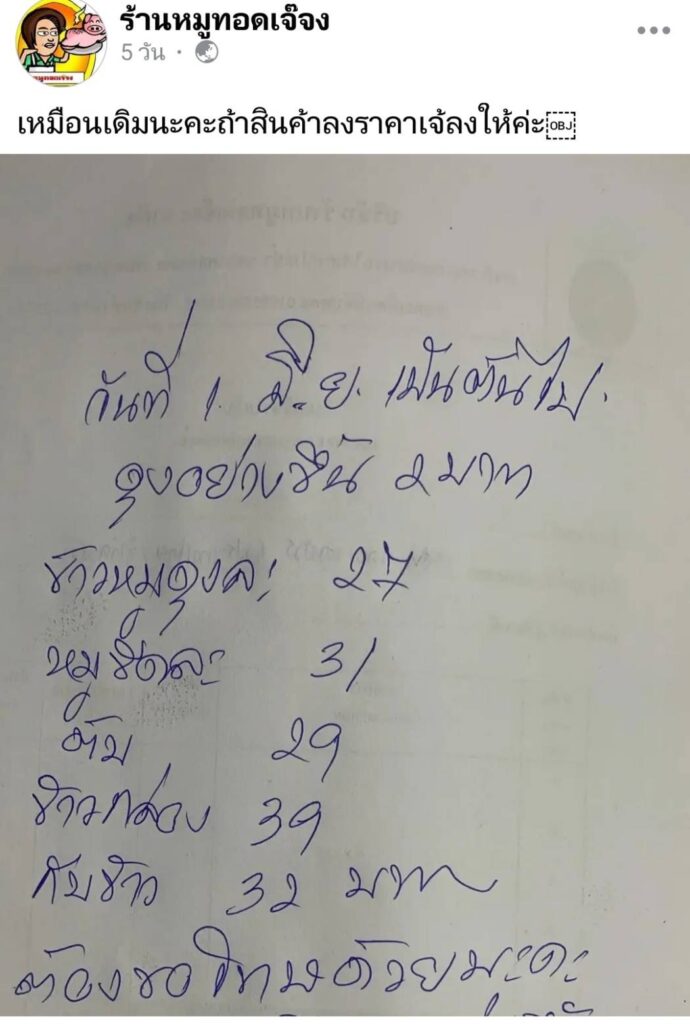 ร้านหมูทอดเจ๊จง
5 วัน
เหมือนเดิมนะคะถ้าสินค้าลงราคาเจ้ลงให้ค่ะ
วันที่ 1. มิ.ย. เป็นต้นไป.
ถุงอย่างขึ้น 2 บาท
ข้าวหมูถุงละ 27
หมูขีดละ 31
ตับ 29
ข้าวกล่อง 39
กับข้าว 32 บาท
ต้องขอโทษด้วยนะคะ